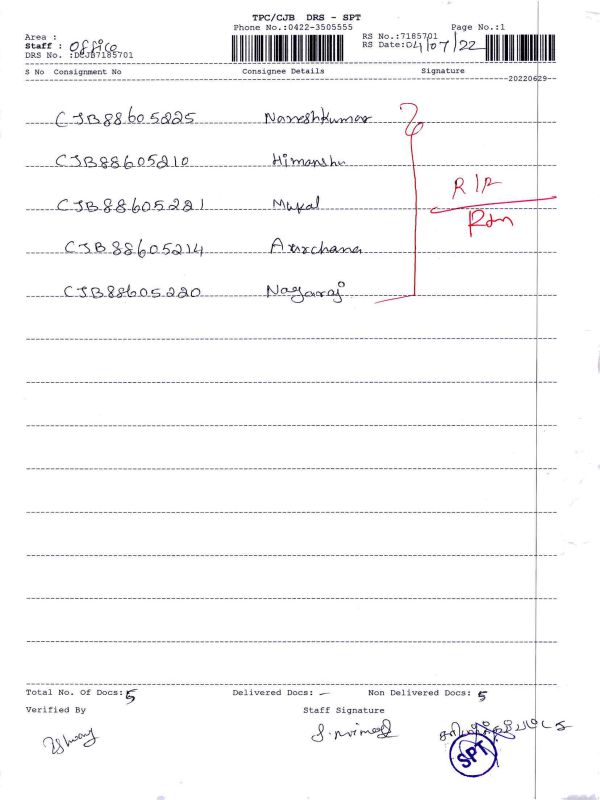 TPC/CJB DRS - SPT
Phone No.:0422-3505555 Page No.:1
Area : RS No.:7185701
Staff : Office RS Date:04/07/22
DRS No. :DCJB7185701
S No Consignment No Consignee Details Signature
20220629
CJB88605225 Nareshkumar
CJB88605210 Himanshu
CJB88605221 Mukal
CJB88605214 Axrchana
CJB88605220 Nagaraj
Total No. Of Docs: 5 Delivered Docs: - Non Delivered Docs: 5
Verified By Staff Signature
SPT